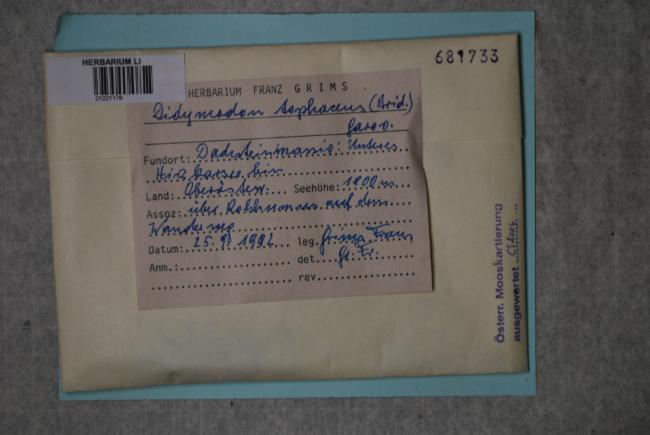 HERBARIUM LI
01221176
681733
HERBARIUM FRANZ GRIMS
Didymodon tophaceus (Brid.)
Fundort: Dachsteinmassiv: Unteres
Land: Oberösterr. Seehöhe: 1800 m
Assoz: über Rohhumus auf dem
Wanderweg
Datum: 25.9.1992 leg. Grims Franz
Anm.: det. Gr. Fr.
rev.
Österr. Mooskartierung
ausgewertet